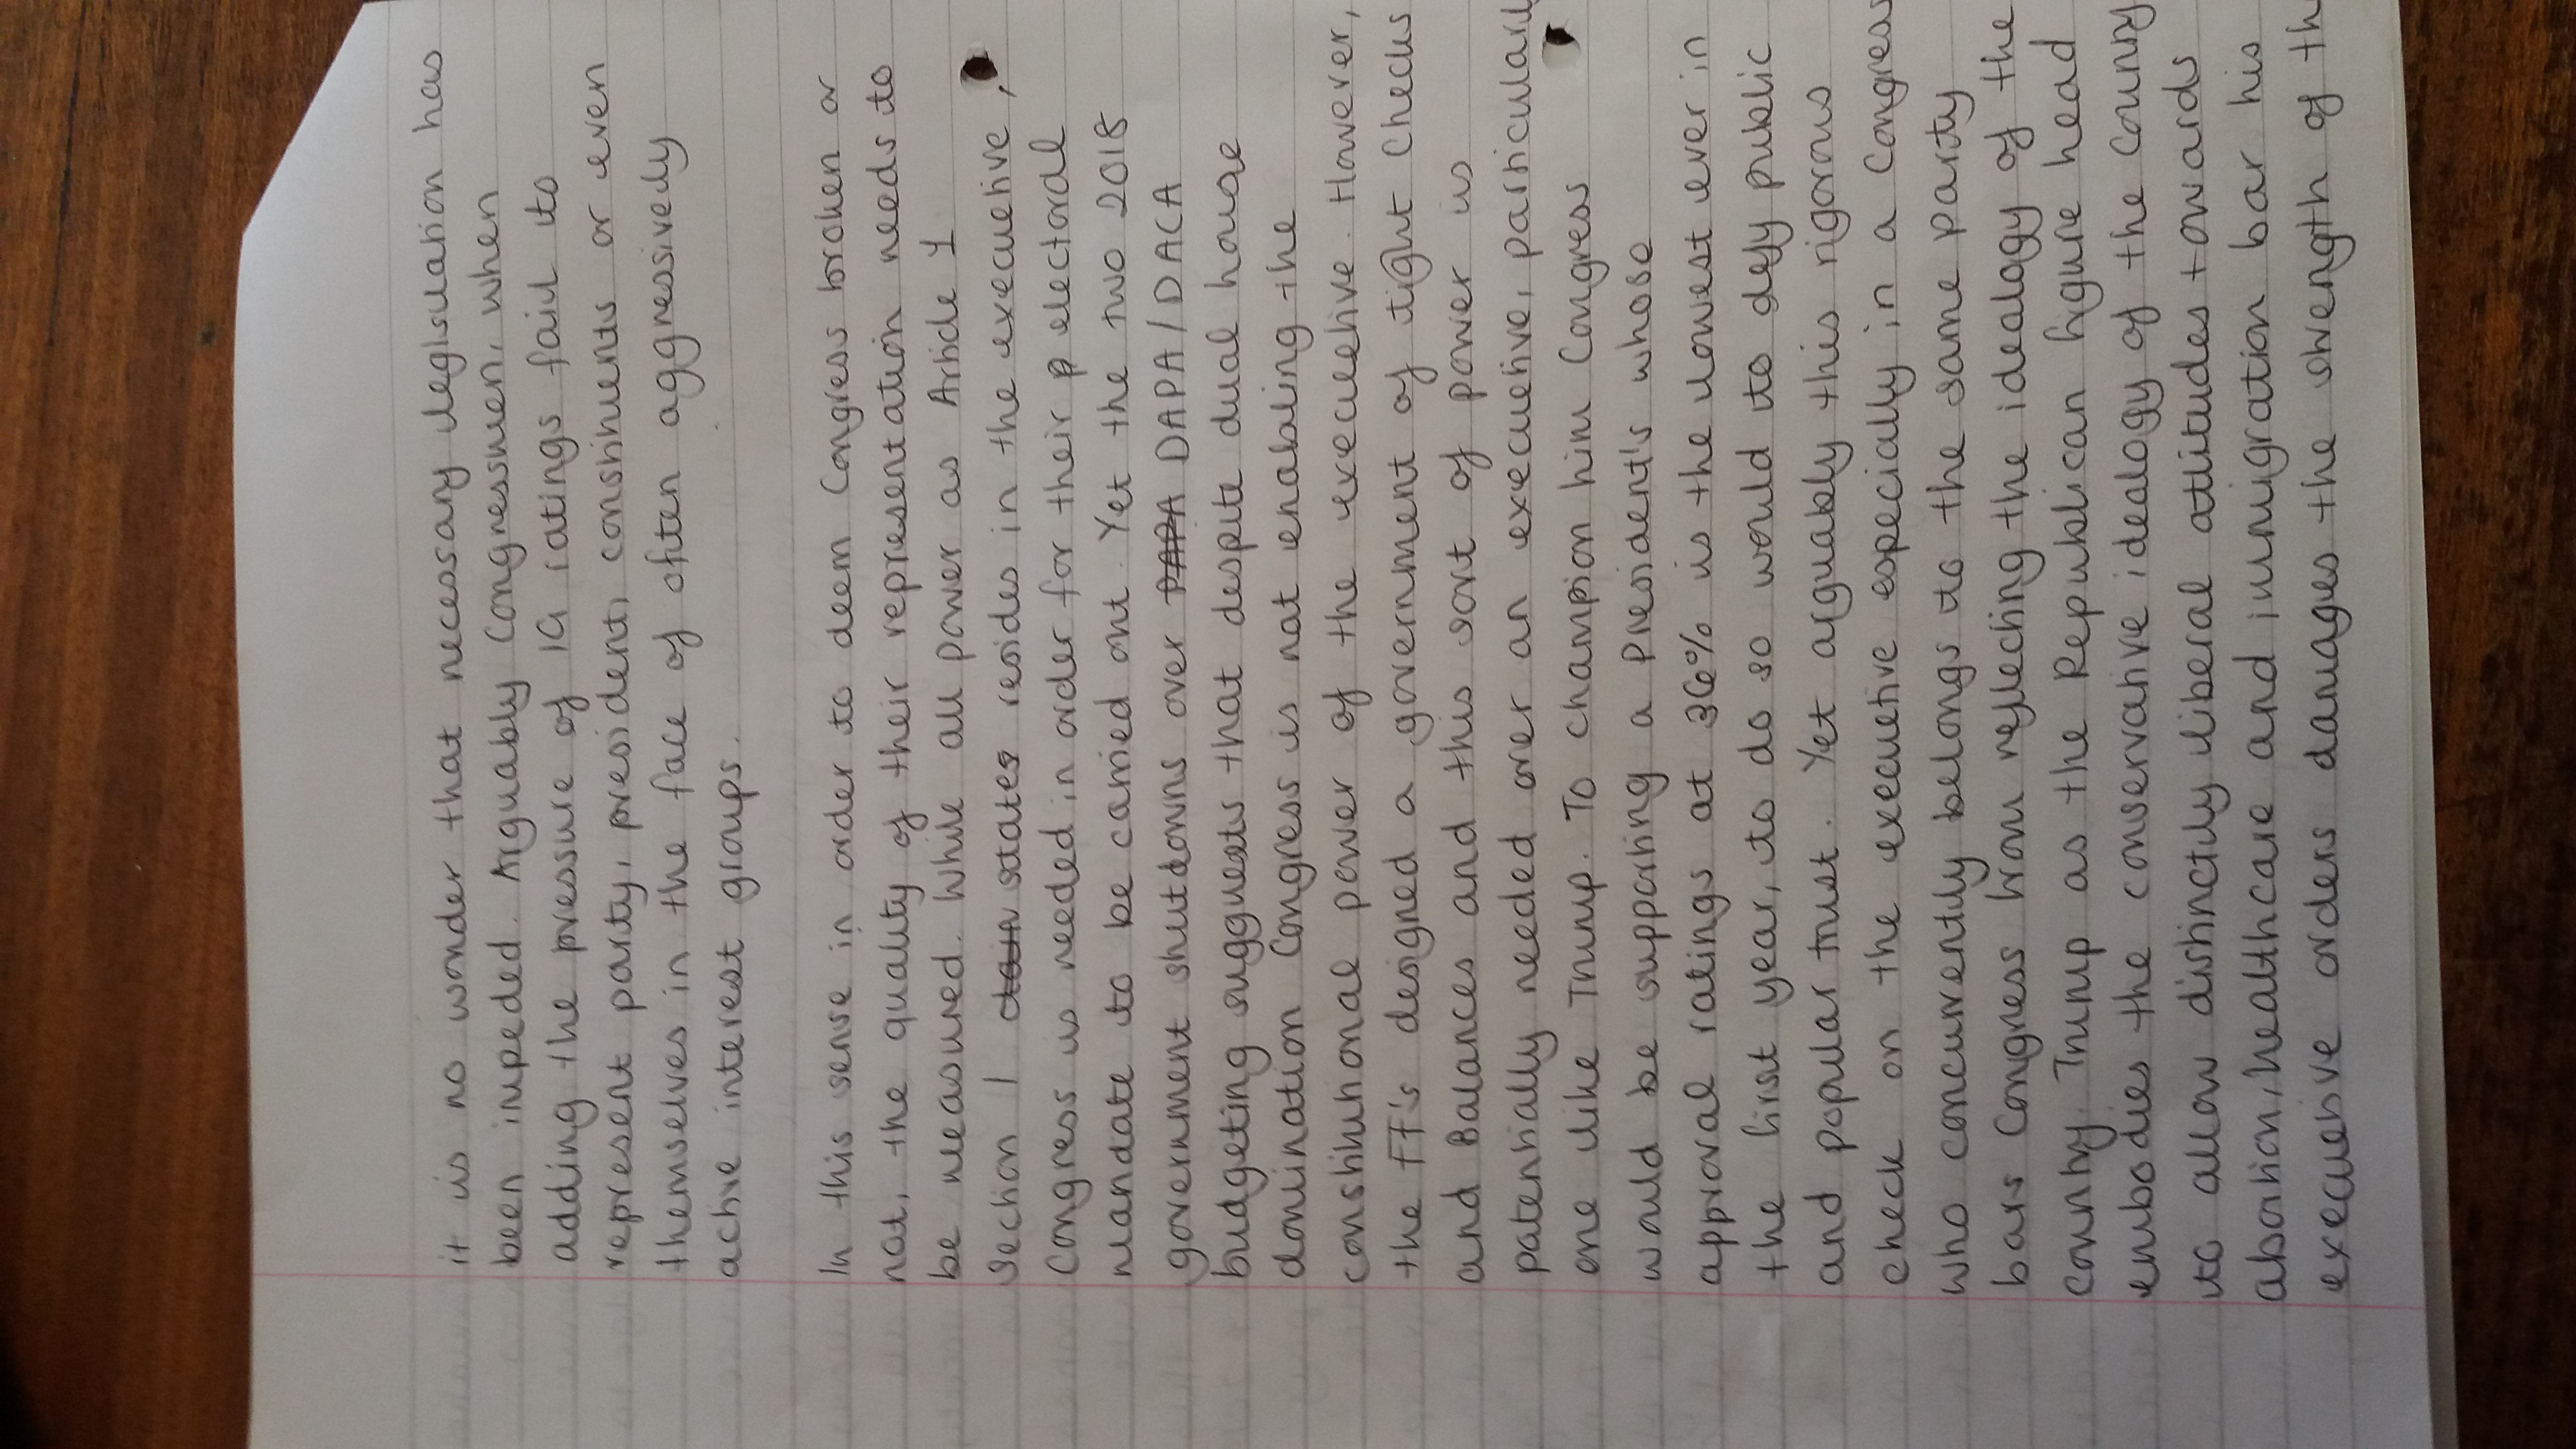 it is no wonder that necessary legislation has
been impeded. Arguably Congressmen, when
adding the pressure of IG ratings fail to
represent party, president, constituents or even
themselves in the face of often aggressively
active interest groups.
In this sense in order to deem Congress broken or
not, the quality of their representation needs to
be measured. While all power as Article 1
Section 1 states resides in the executive,
Congress is needed in order for their electoral
mandate to be carried out. Yet the two 2018
government shutdowns over DAPA/DACA
budgeting sugguests that despite dual house
domination Congress is not enabling the
constitutional power of the executive. However,
the FF's designed a government of tight Checks
and Balances and this sort of power is
potentially needed over an executive, particularly
one like Trump. To champion him Congress
would be supporting a president's whose
approval ratings at 36% is the lowest ever in
the first year, to do so would to defy public
and popular trust. Yet arguably this rigorous
check on the executive especially in a Congress
who concurrently belongs to the same party
bars Congress from reflecting the idealogy of the
country. Trump as the Republican figure head
embodies the conservative idealogy of the country
to allow distinctly liberal attitudes towards
abortion, healthcare and immigration bar his
executive orders damages the strength of th